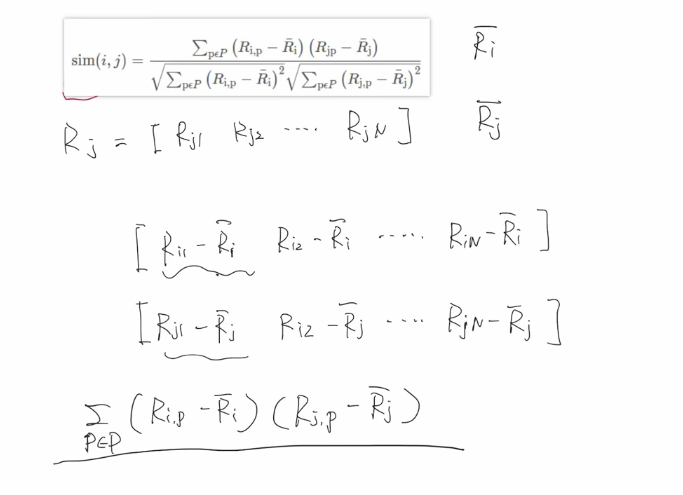 sim(i, j) = ∑_{pϵP} (R_{i,p} − R̄_i) (R_{jp} − R̄_j) / √(∑_{pϵP} (R_{i,p} − R̄_i)²) √(∑_{pϵP} (R_{j,p} − R̄_j)²)
R̄_i
R_j = [ R_{j1} R_{j2} ···· R_{jN} ]
R̄_j
[ R_{i1} − R̄_i R_{i2} − R̄_i ····· R_{iN} − R̄_i ]
[ R_{j1} − R̄_j R_{i2} − R̄_j ···· R_{jN} − R̄_j ]
∑_{P∈P} (R_{i,p} − R̄_i) (R_{j,p} − R̄_j)